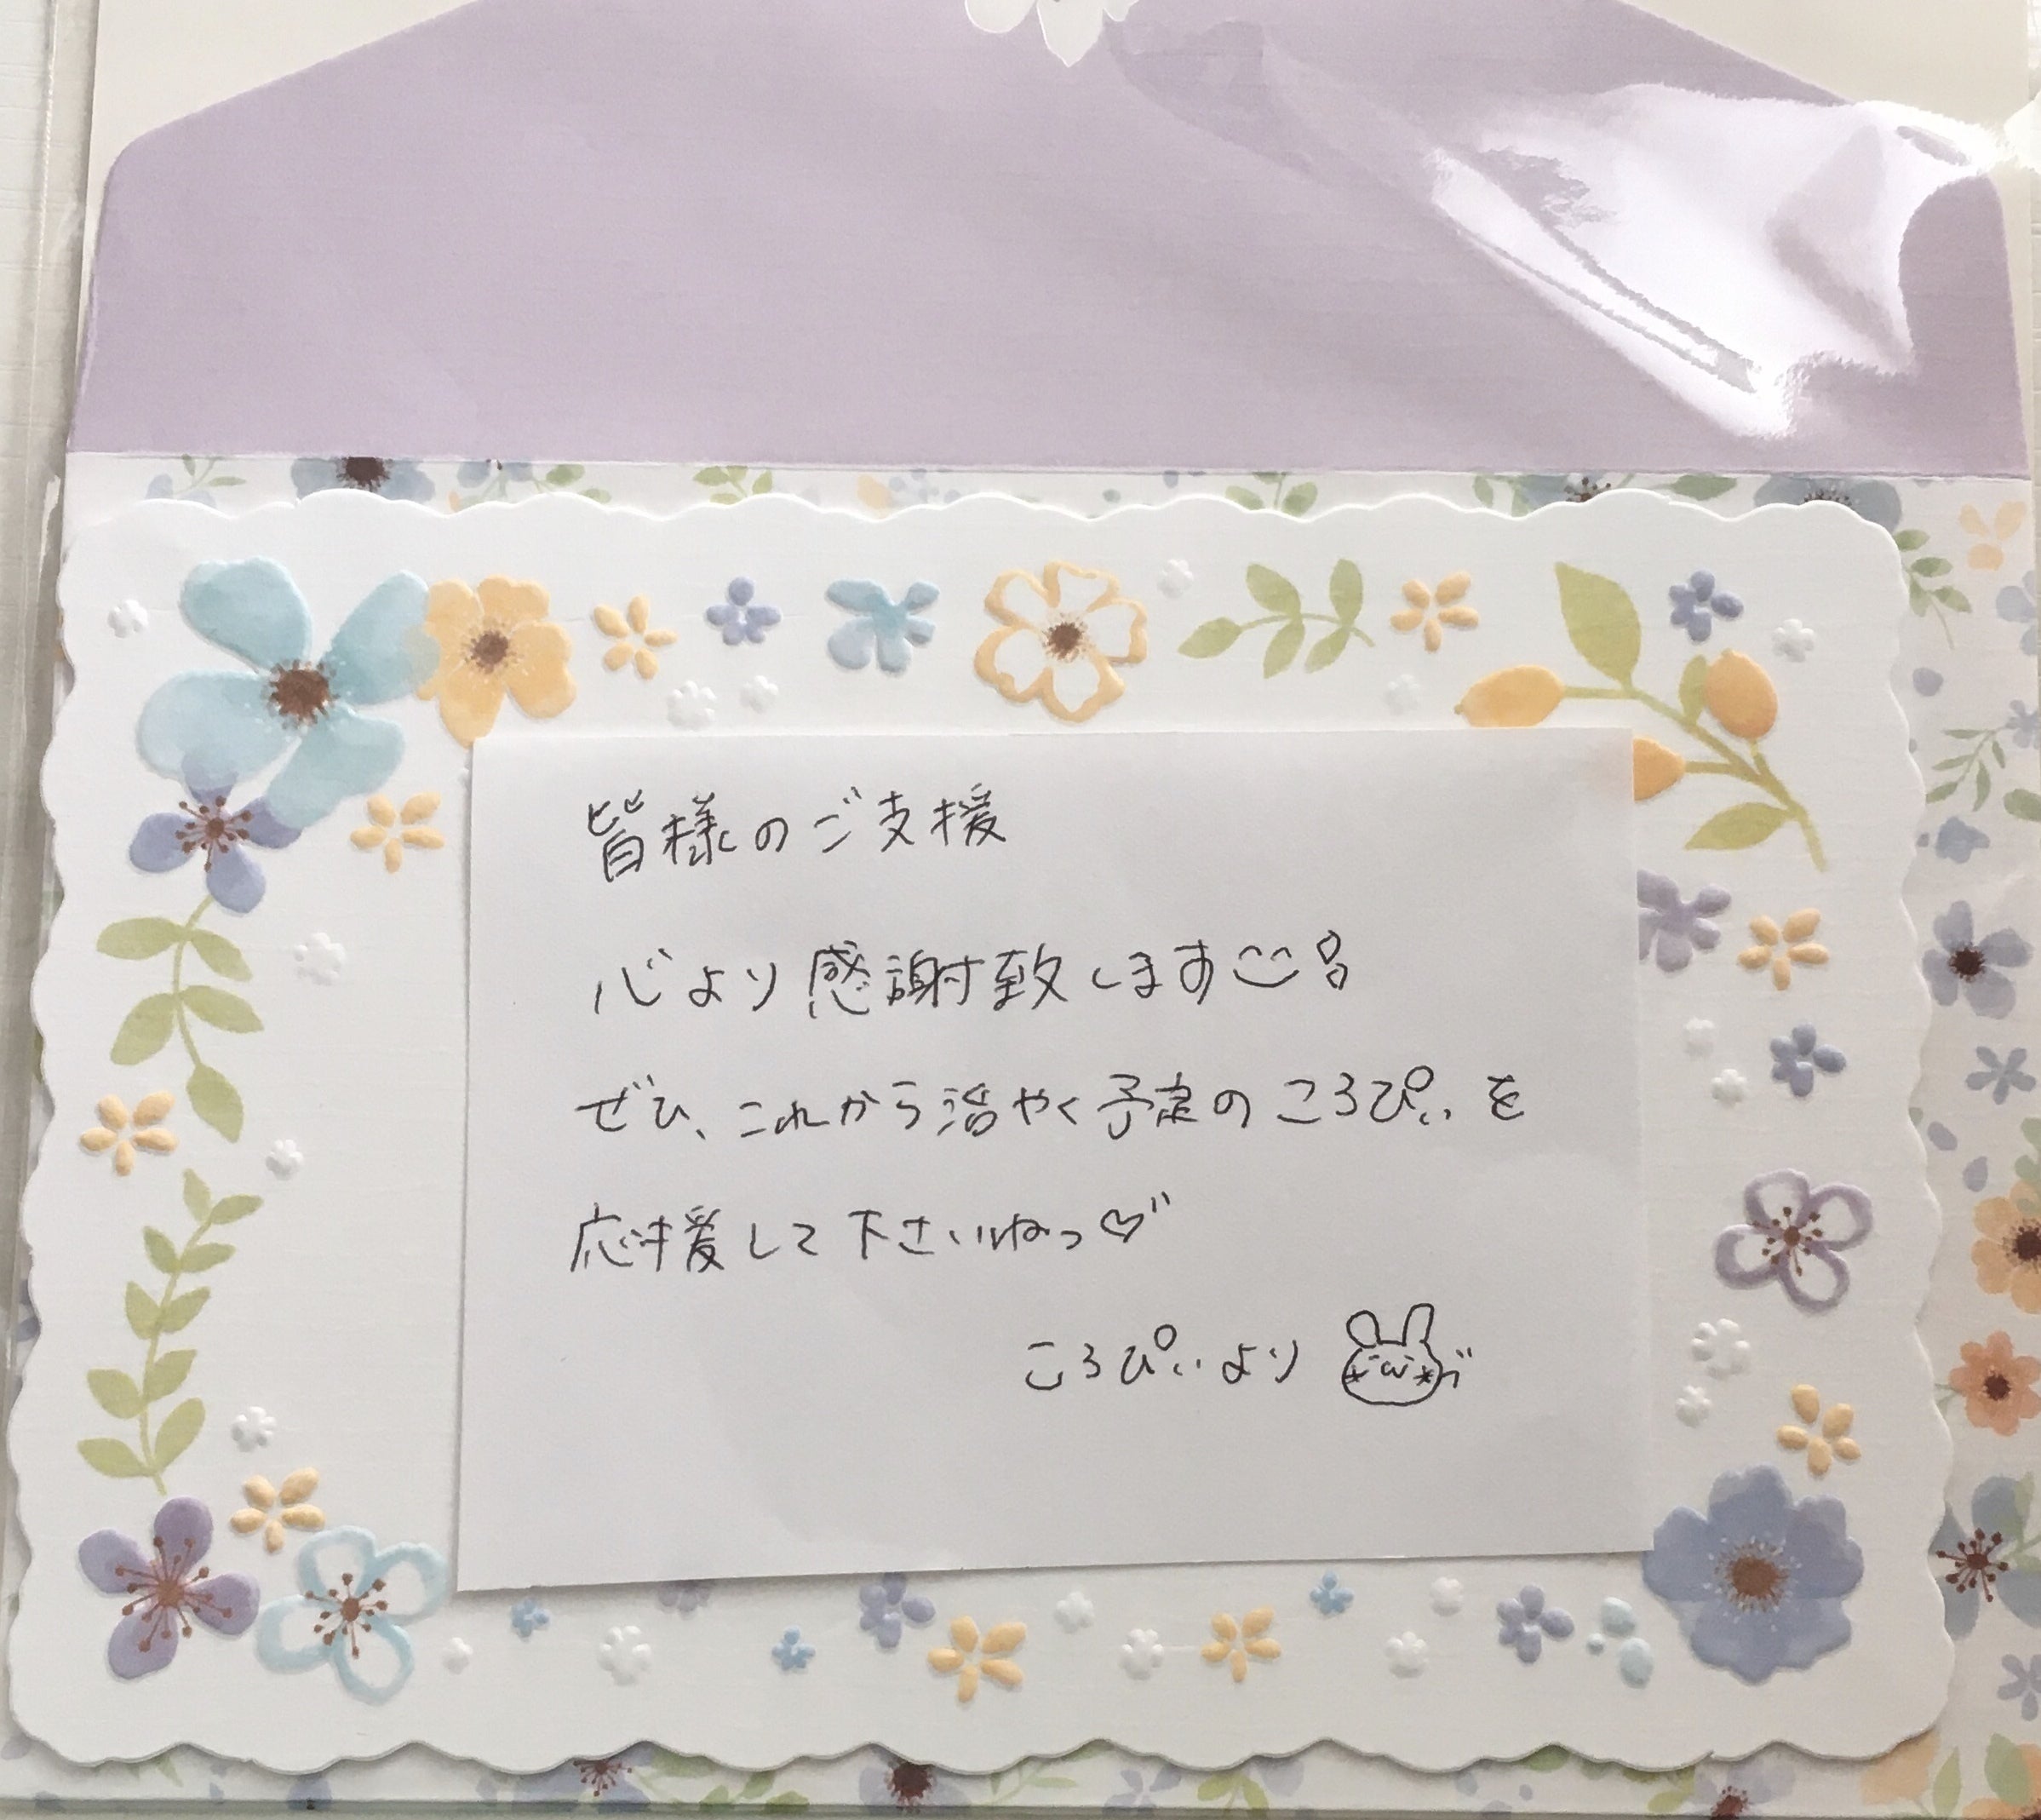 皆様のご支援
心より感謝致します
ぜひ、これから活やく予定のころぴぃを
応援して下さいねっ♡
ころぴぃより